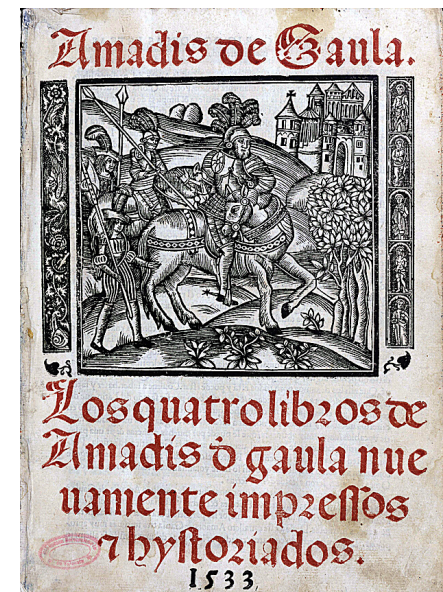 Amadis de Gaula.
Los quatro libros de
Amadis d̛ gaula nue
uamente impressos
⁊ hystoriados.
1533